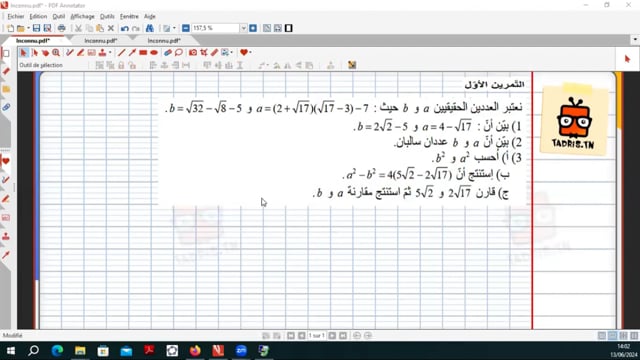 Inconnu.pdf* - PDF Annotator
Fichier Edition Outil Affichage Outils Fenêtre Aide
157,5 %
Inconnu.pdf* Inconnu.pdf* Inconnu.pdf*
Outil de sélection
التمرين الأوّل
نعتبر العددين الحقيقيين a و b حيث : a = (2 + √17)(√17 − 3) − 7 و b = √32 − √8 − 5.
1) بيّن أنّ : a = 4 − √17 و b = 2√2 − 5.
2) بيّن أنّ a و b عددان سالبان.
3) أ) أحسب a² و b².
ب) إستنتج أنّ a² − b² = 4(5√2 − 2√17).
ج) قارن 2√17 و 5√2 ثمّ استنتج مقارنة a و b.
TADRIS.TN
Modifié
1 sur 1
14:02
13/06/2024